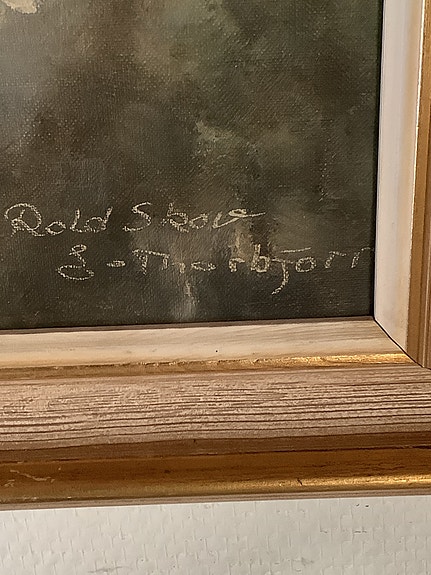 Rold Skov
S. Thorbjørn